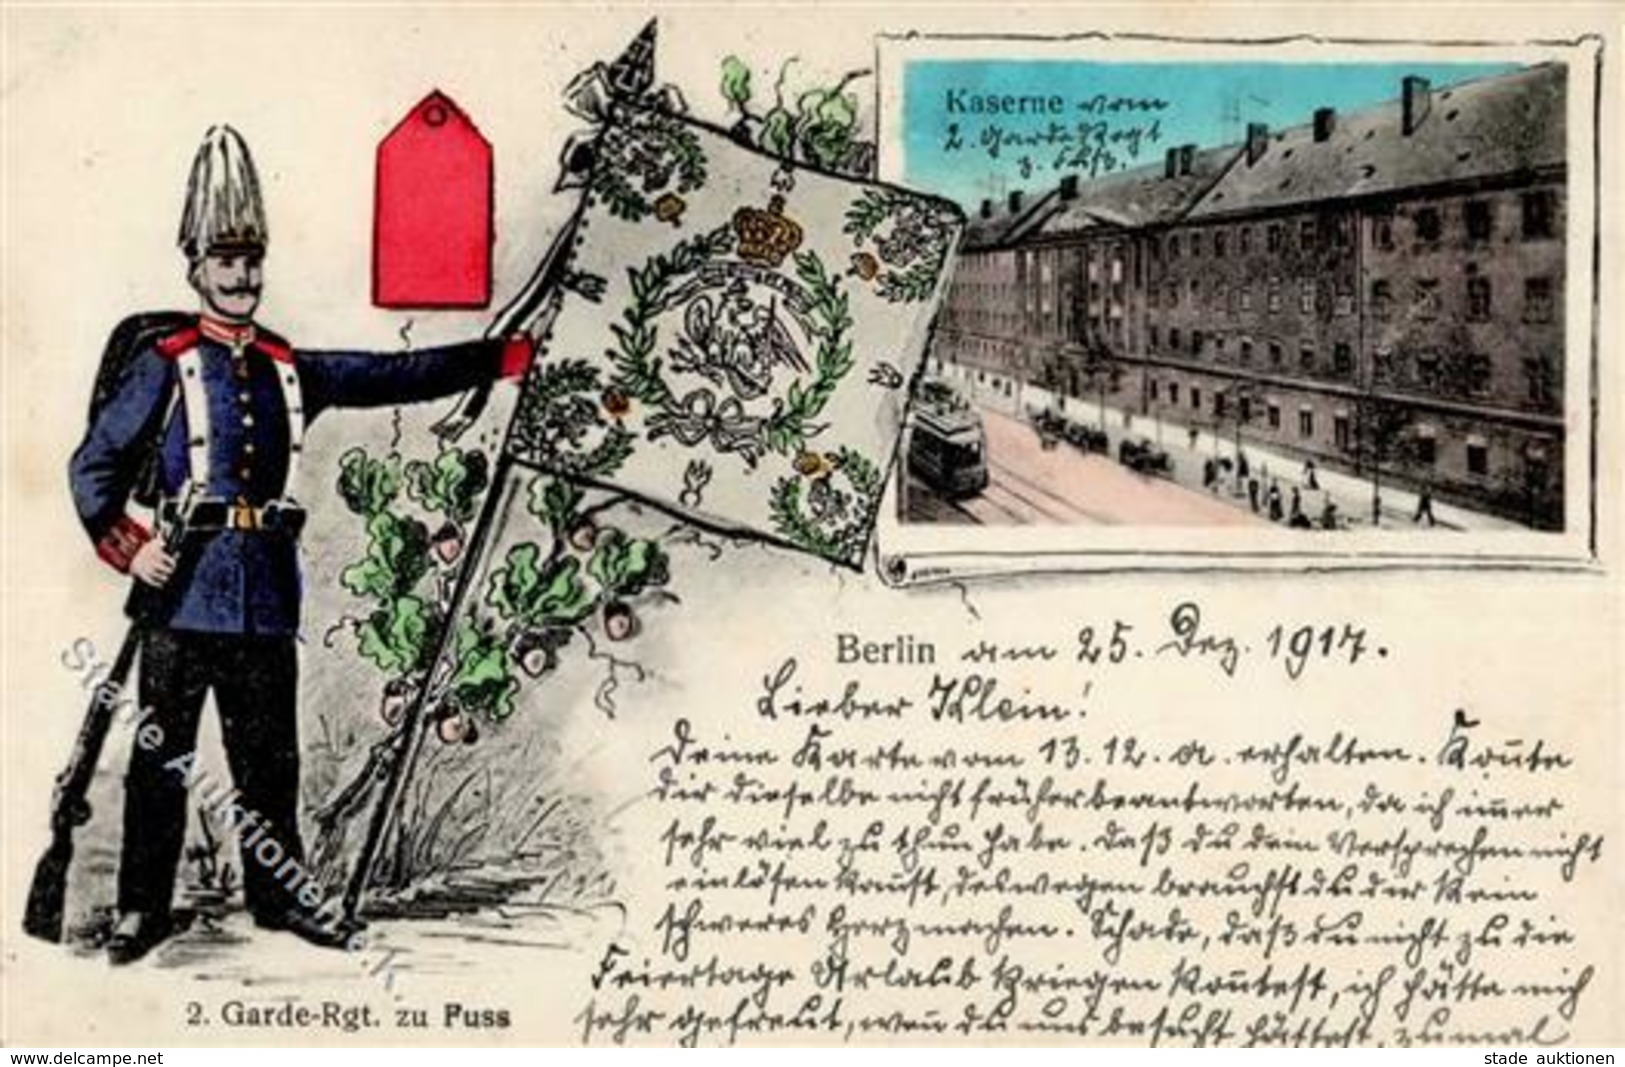 Kaserne vom
2. Garde-Regt
z. Fuß.
Berlin am 25. Dez. 1917.
Lieber Klein!
Deine Karte vom 13. 12. a. erhalten. Koñte
dir dieselbe nicht früher beantworten, da ich im̄er
sehr viel zu thun habe. Daß du dein Versprechen nicht
einlösen kañst, deswegen brauchst du dir kein
schweres Herz machen. Schade, daß du nicht zu die
Feiertage Urlaub kriegen koñtest, ich hätte mich
sehr gefreut, weñ du uns besucht hättest, zumal
2. Garde-Rgt. zu Fuss
Stade Auktionen e.K
www.delcampe.net
stade auktionen